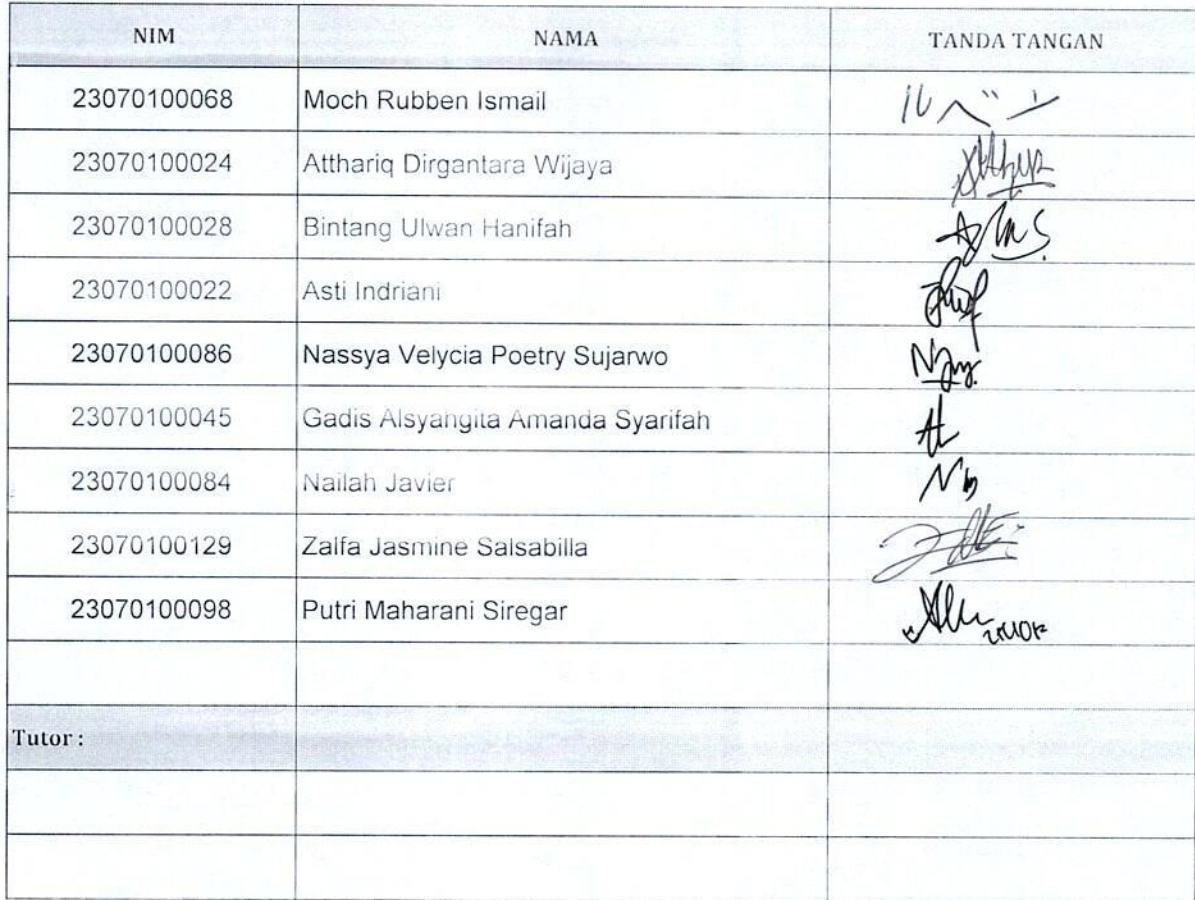 NIM NAMA TANDA TANGAN
23070100068 Moch Rubben Ismail ルベン
23070100024 Atthariq Dirgantara Wijaya
23070100028 Bintang Ulwan Hanifah
23070100022 Asti Indriani
23070100086 Nassya Velycia Poetry Sujarwo
23070100045 Gadis Alsyahgita Amanda Syarifah
23070100084 Nailah Javier
23070100129 Zalfa Jasmine Salsabilla
23070100098 Putri Maharani Siregar
Tutor :